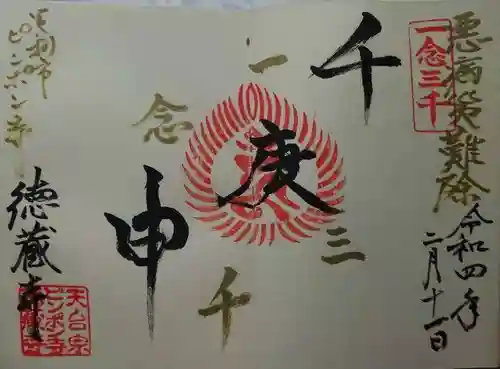 悪病災難除
一念三千
令和四年
二月十一日
千
庚
申
一
念
三
千
足利市
ピンポン寺
徳蔵寺